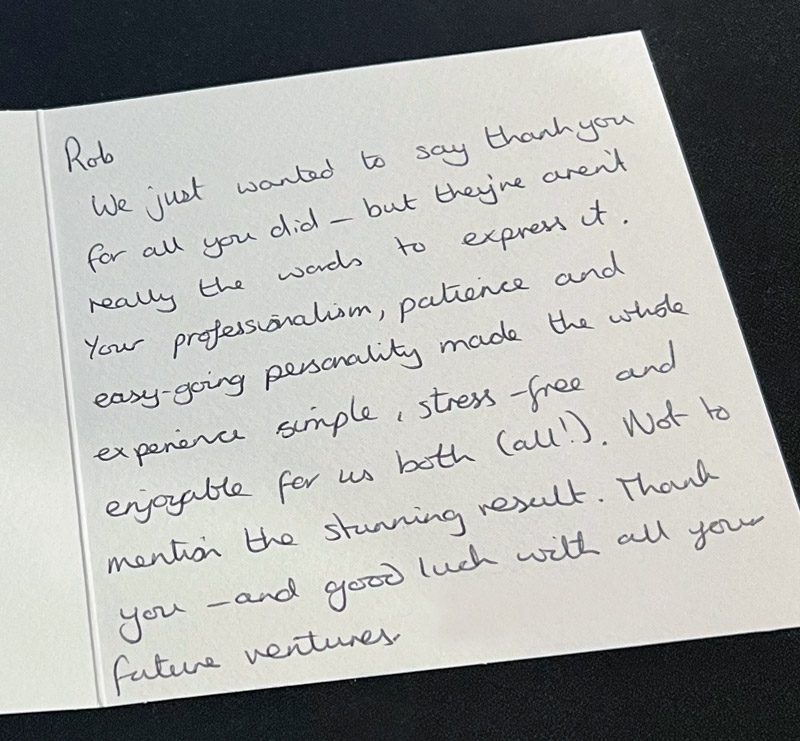 Rob
We just wanted to say thank you
for all you did – but they're aren't
really the words to express it.
Your professionalism, patience and
easy-going personality made the whole
experience simple, stress-free and
enjoyable for us both (all!). Not to
mention the stunning result. Thank
you – and good luck with all your
future ventures.